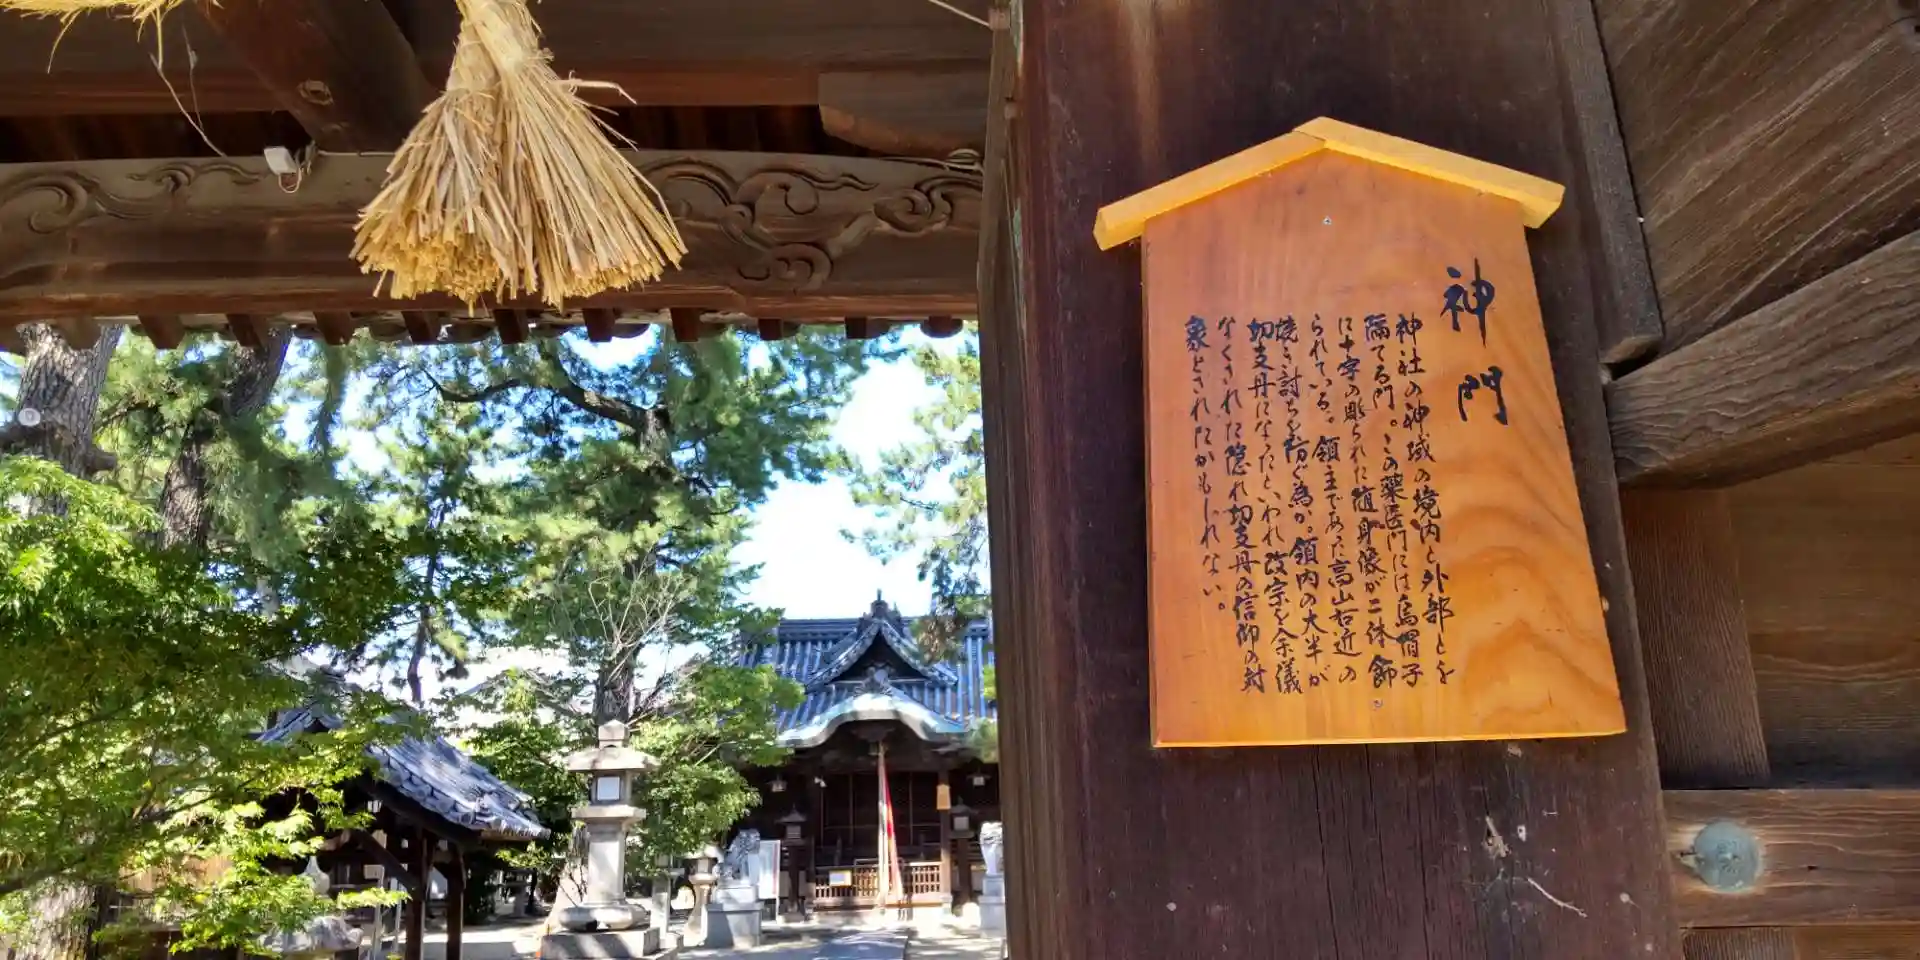 神門
神社の神域の境内と外部とを
隔てる門。この薬医門には烏帽子
に十字の彫られた随身像が二体飾
られている。領主であった高山右近の
焼き討ちを防ぐ為か。領内の大半が
切支丹になったといわれ改宗を余儀
なくされた隠れ切支丹の信仰の対
象とされたかもしれない。